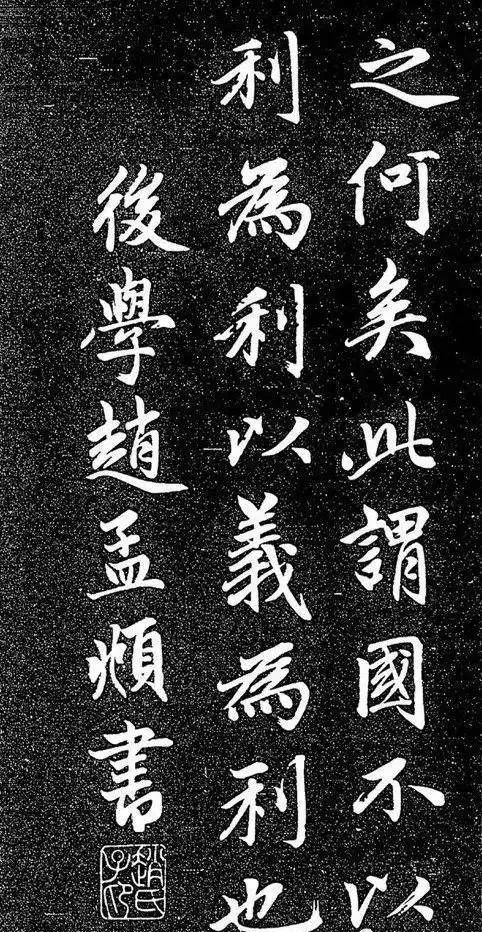 之何矣此謂國不以
利為利以義為利也
後學趙孟頫書
趙氏子昂